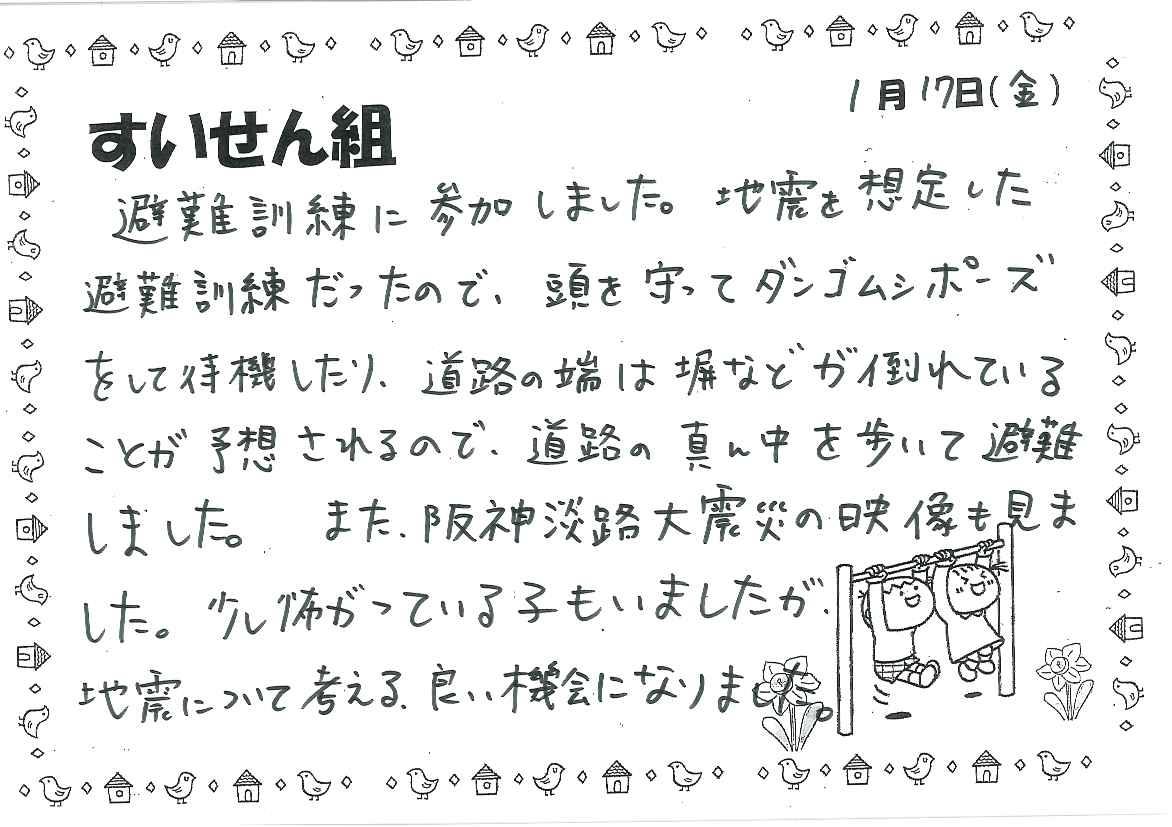 1月17日(金)
すいせん組
避難訓練に参加しました。地震を想定した
避難訓練だったので、頭を守ってダンゴムシポーズ
をして待機したり、道路の端は塀などが倒れている
ことが予想されるので、道路の真ん中を歩いて避難
しました。また、阪神淡路大震災の映像も見ま
した。少し怖がっている子もいましたが、
地震について考える、良い機会になりました。